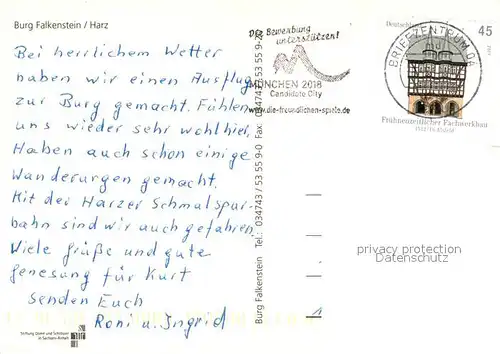 Burg Falkenstein / Harz
Bei herrlichem Wetter
haben wir einen Ausflug
zur Burg gemacht. Fühlen
uns wieder sehr wohl hier.
Haben auch schon einige
Wanderungen gemacht.
Mit der Harzer Schmalspur-
bahn sind wir auch gefahren.
Viele Grüße und gute
Genesung für Kurt
senden Euch
Roni u. Ingrid
Stiftung Dome und Schlösser
in Sachsen-Anhalt
Burg Falkenstein Tel.: 034743 / 53 55 9-0 Fax: 034743 / 53 55 9-
Die Bewerbung
unterstützen!
MÜNCHEN 2018
Candidate City
www.die-freundlichen-spiele.de
BRIEFZENTRUM 0
Deutschl
45
Frühneuzeitlicher Fachwerkbau
privacy protection
Datenschutz